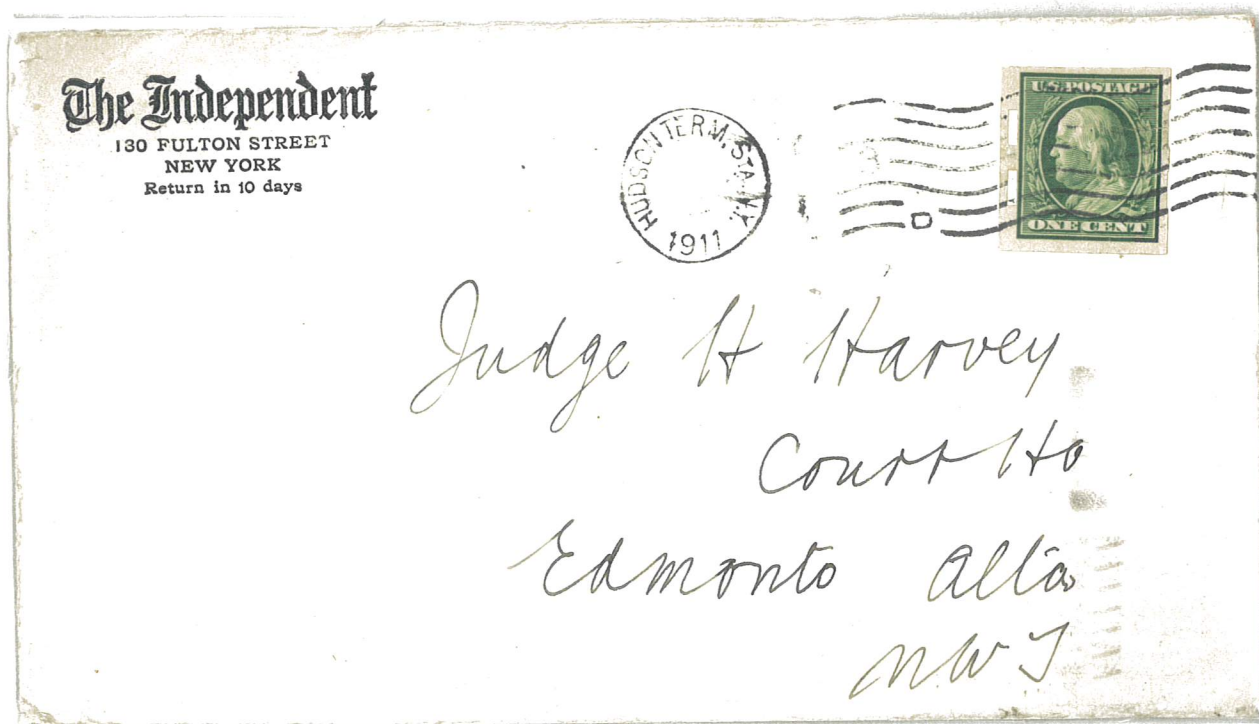 The Independent
130 FULTON STREET
NEW YORK
Return in 10 days
HUDSON TERM. STA. N.Y.
1911
D
U.S. POSTAGE
ONE CENT
Judge H Harvey
Court Ho
Edmonto Alta
NWT